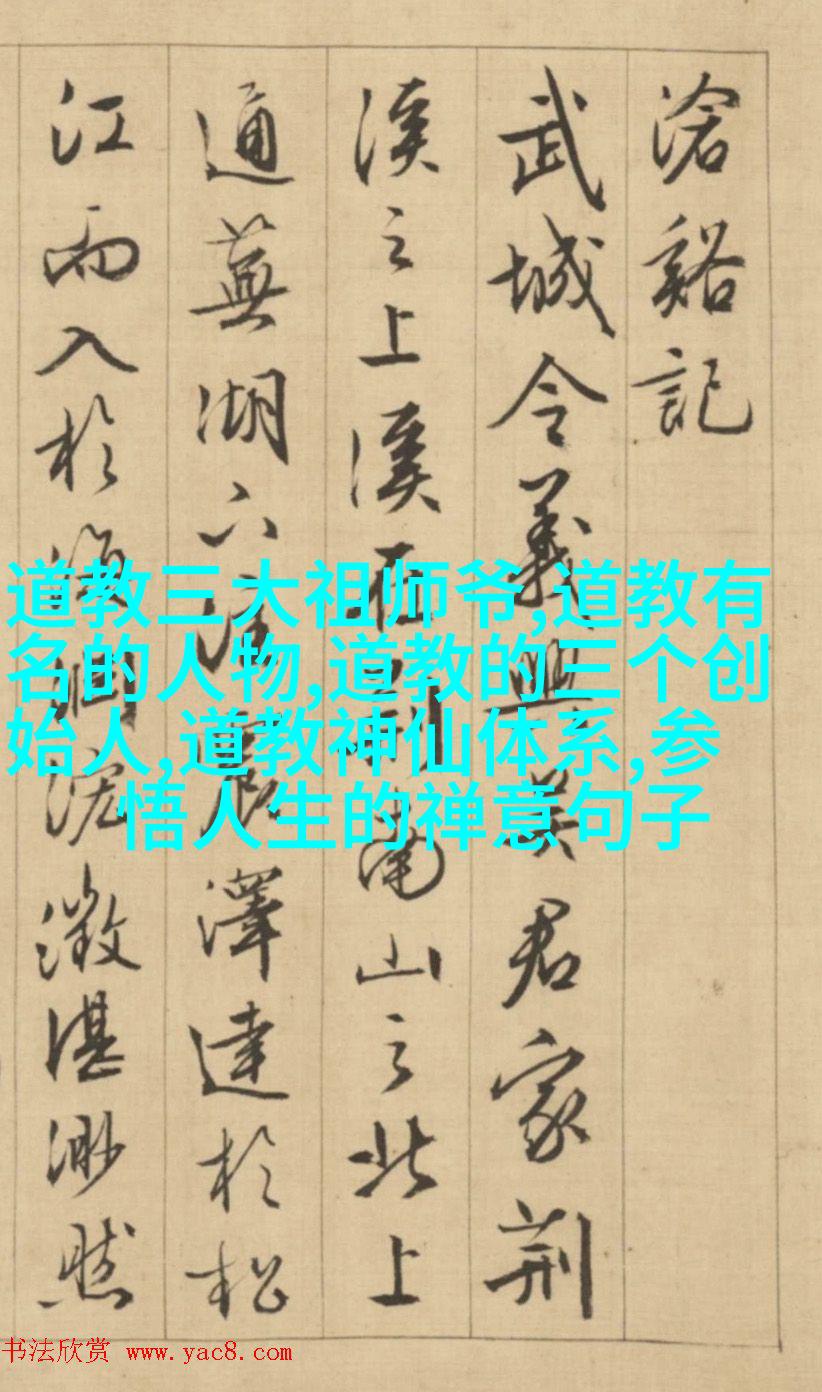 滄谿記
武城令義興吳君家荆
溪之上溪在荆南山之北上
通蕪湖下注震澤達於松
江而入於泓澂湛渺然
道教三大祖师爷,道教有
名的人物,道教的三个创
始人,道教神仙体系,参
悟人生的禅意句子
书法欣赏 www.yac8.com